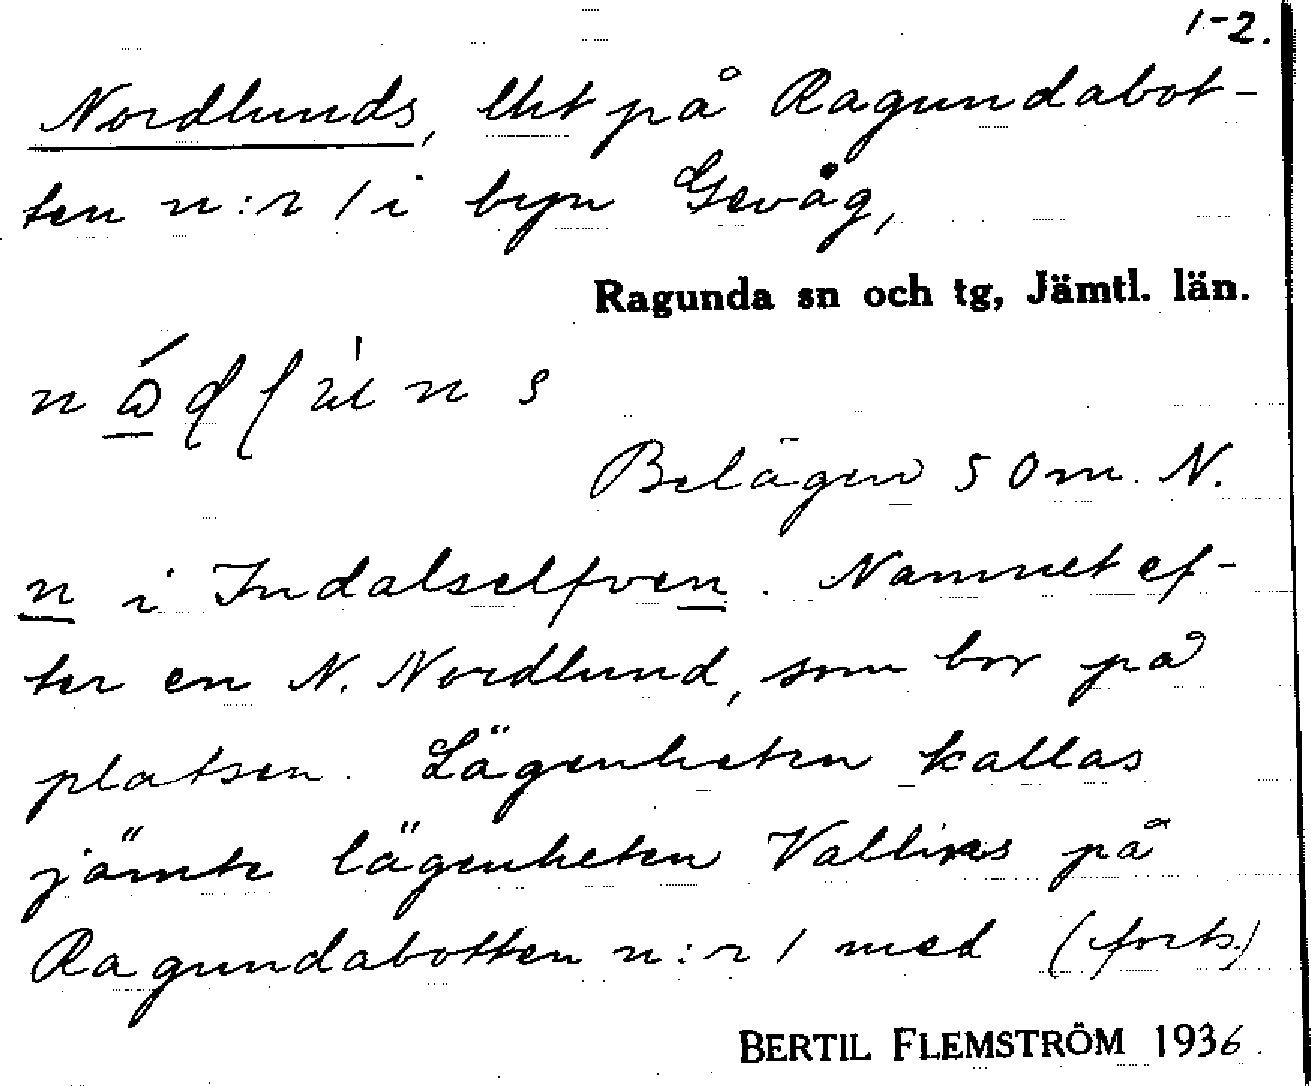 1-2.
Nordlunds, lht på Ragundabot-
ten n:r 1 i byn Gevåg,
Ragunda sn och tg, Jämtl. län.
Belägen 50 m. N.
n i Indalselfven. Namnet ef-
ter en N. Nordlund, som bor på
platsen. Lägenheten kallas
jämte lägenheten Vallins på
Ragundabotten n:r 1 med (forts.)
BERTIL FLEMSTRÖM 1936.